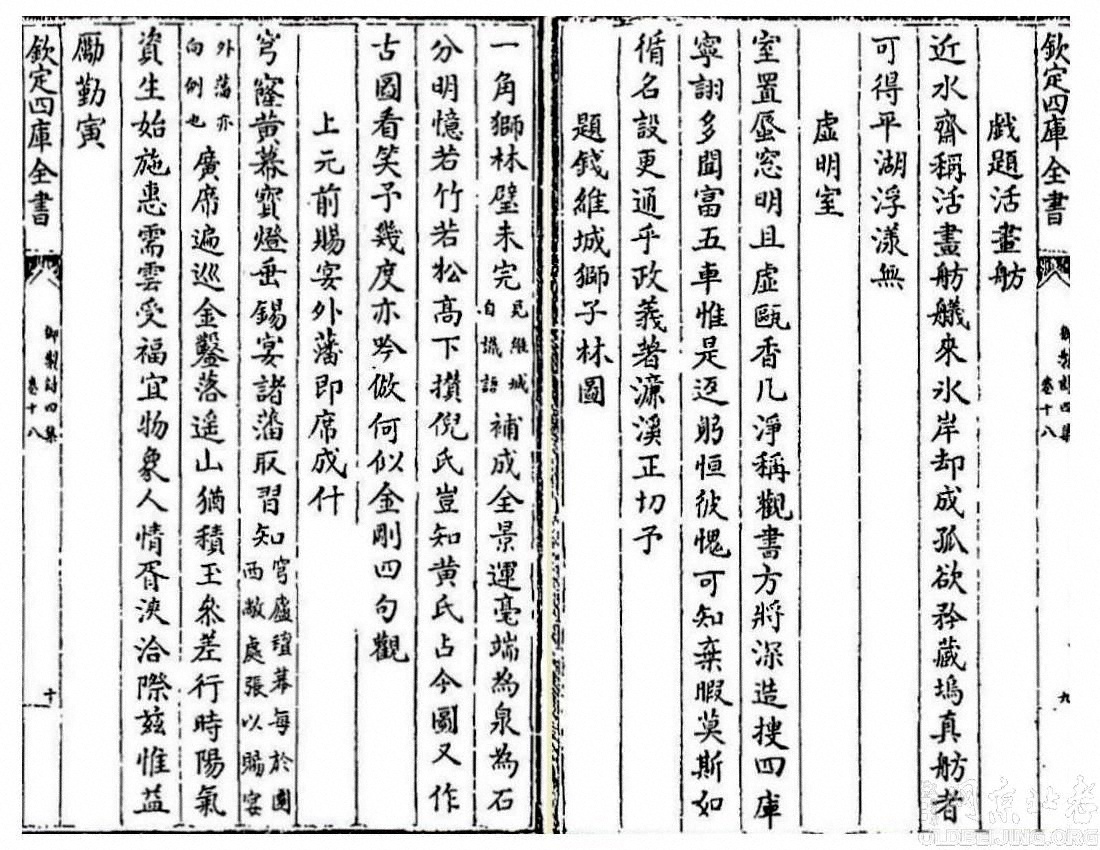 欽定四庫全書
御製詩四集
卷十八
九
戲題活畫舫
近水齋稱活畫舫艤來水岸却成孤欲矜藏塢真舫者
可得平湖浮漾無
虛明室
室置蜃窓明且虛甌香几淨稱觀書方將深造搜四庫
寧詡多聞富五車惟是返躬恒彼愧可知棄暇莫斯如
循名設更通乎政義著濂溪正切予
題錢維城獅子林圖
一角獅林壁未完見維城自識語補成全景運毫端為泉為石
分明憶若竹若松高下攢倪氏豈知黄氏占今圖又作
古圖看笑予幾度亦吟倣何似金剛四句觀
上元前賜宴外藩即席成什
穹窿黄幕寳燈垂錫宴諸藩取習知穹廬氊幕每於園西敞處張以賜宴
外藩亦向例也廣席遍巡金鑿落遥山猶積玉叅差行時陽氣
資生始施惠需雲受福宜物象人情胥浹洽際兹惟益
勵勤寅
欽定四庫全書
御製詩四集
卷十八
十
OLDBEIJING.ORG